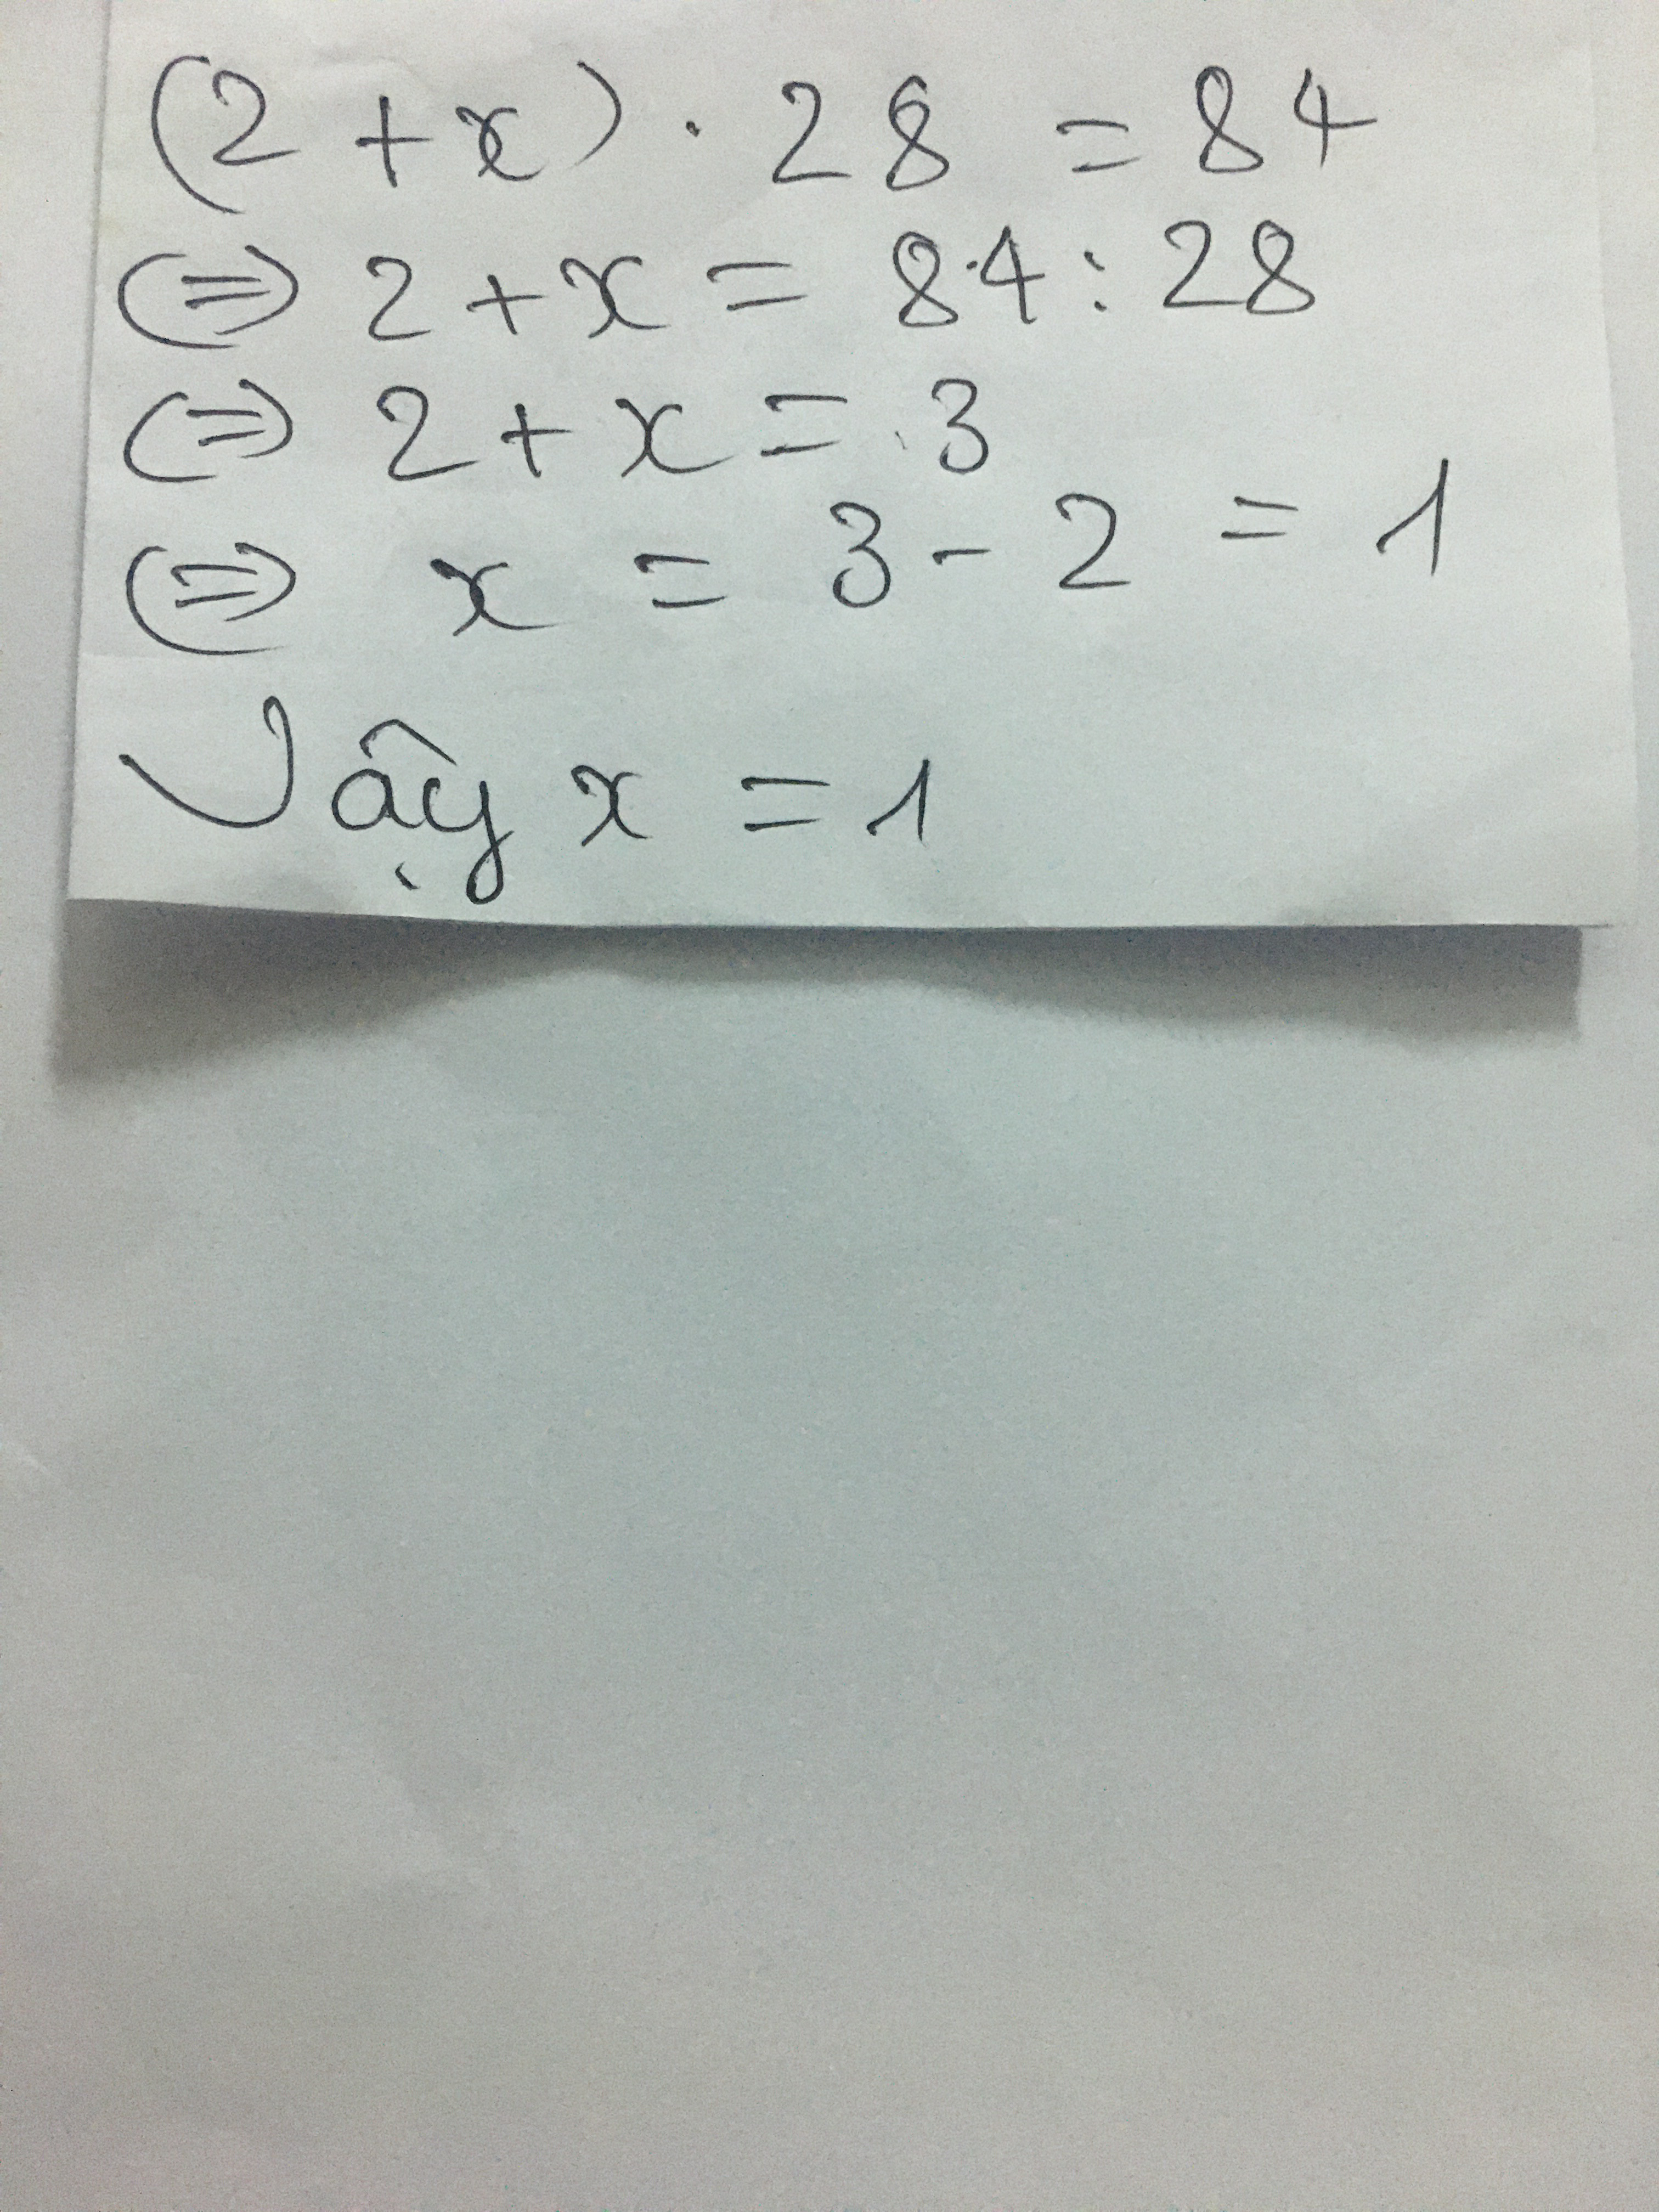 (2 + x) . 28 = 84
(=) 2 + x = 84 : 28
(=) 2 + x = 3
(=) x = 3 - 2 = 1
Vậy x = 1